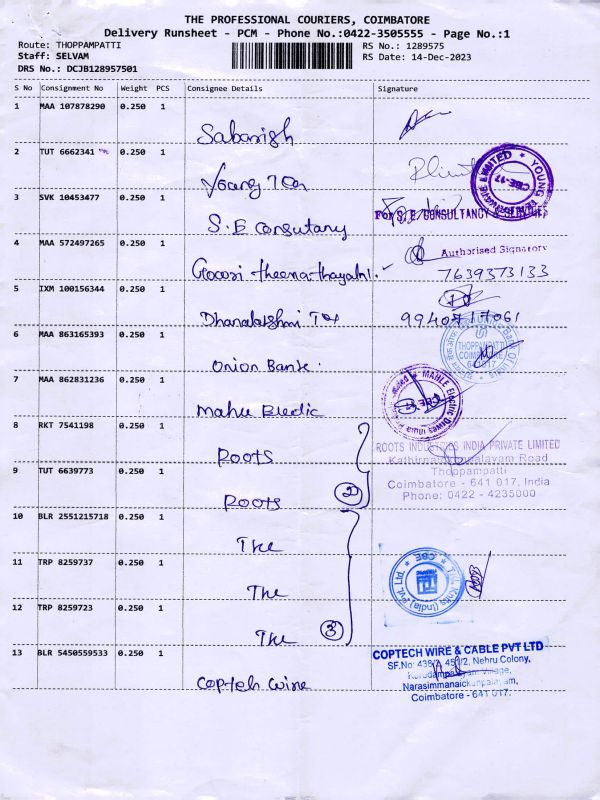 THE PROFESSIONAL COURIERS, COIMBATORE
Delivery Runsheet - PCM - Phone No.:0422-3505555 - Page No.:1
Route: THOPPAMPATTI RS No.: 1289575
Staff: SELVAM RS Date: 14-Dec-2023
DRS No.: DCJB128957501
S No Consignment No Weight PCS Consignee Details Signature
1 MAA 107878290 0.250 1
Sabarish
2 TUT 6662341 0.250 1
Young Tex
YOUNG LIMITED CBE-17
3 SVK 10453477 0.250 1
S.E Consultany
For S. E. CONSULTANCY & SERVICES
4 MAA 572497265 0.250 1
Authorised Signatory
Gowri theena thayalni 7639373133
5 IXM 100156344 0.250 1
Dhanalakshmi Tex 9940717061
6 MAA 863165393 0.250 1
THOPPAMPATTI
COIMBATORE
641 017
Onion Bank
7 MAA 862831236 0.250 1
MAHLE Electric Drives India
Mahle Eledic
8 RKT 7541198 0.250 1
Roots
ROOTS INDUSTRIES INDIA PRIVATE LIMITED
Kathirnaickenpalayam Road
Thoppampatti
Coimbatore - 641 017, India
Phone: 0422 - 4235000
9 TUT 6639773 0.250 1
Roots 2
10 BLR 2551215718 0.250 1
The
11 TRP 8259737 0.250 1
The
Knits (India) Pvt. Ltd. CBE
12 TRP 8259723 0.250 1
The 3
13 BLR 5450559533 0.250 1
COPTECH WIRE & CABLE PVT LTD
SF.No: 439/2, 451/2, Nehru Colony,
Kurudampalayam Village,
Narasimmanaickenpalayam,
Coimbatore - 641 017.
Coptech wire